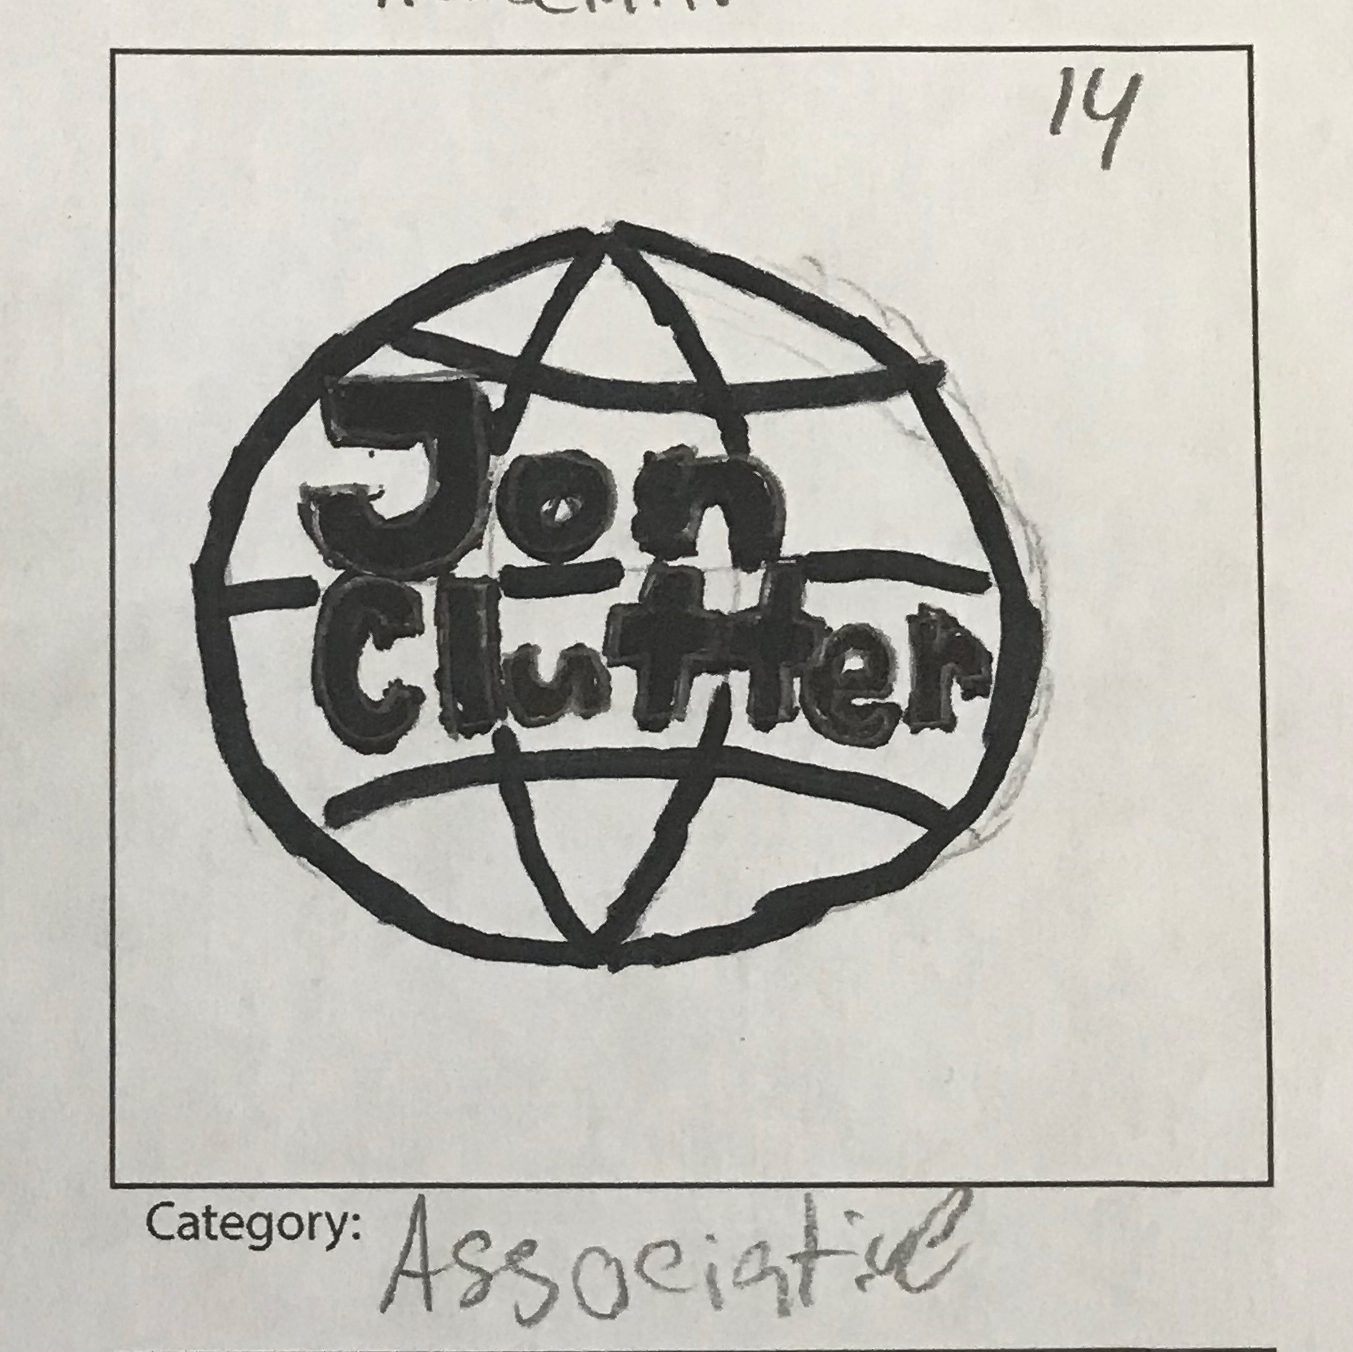 14
Jon
Clutter
Category: Associative